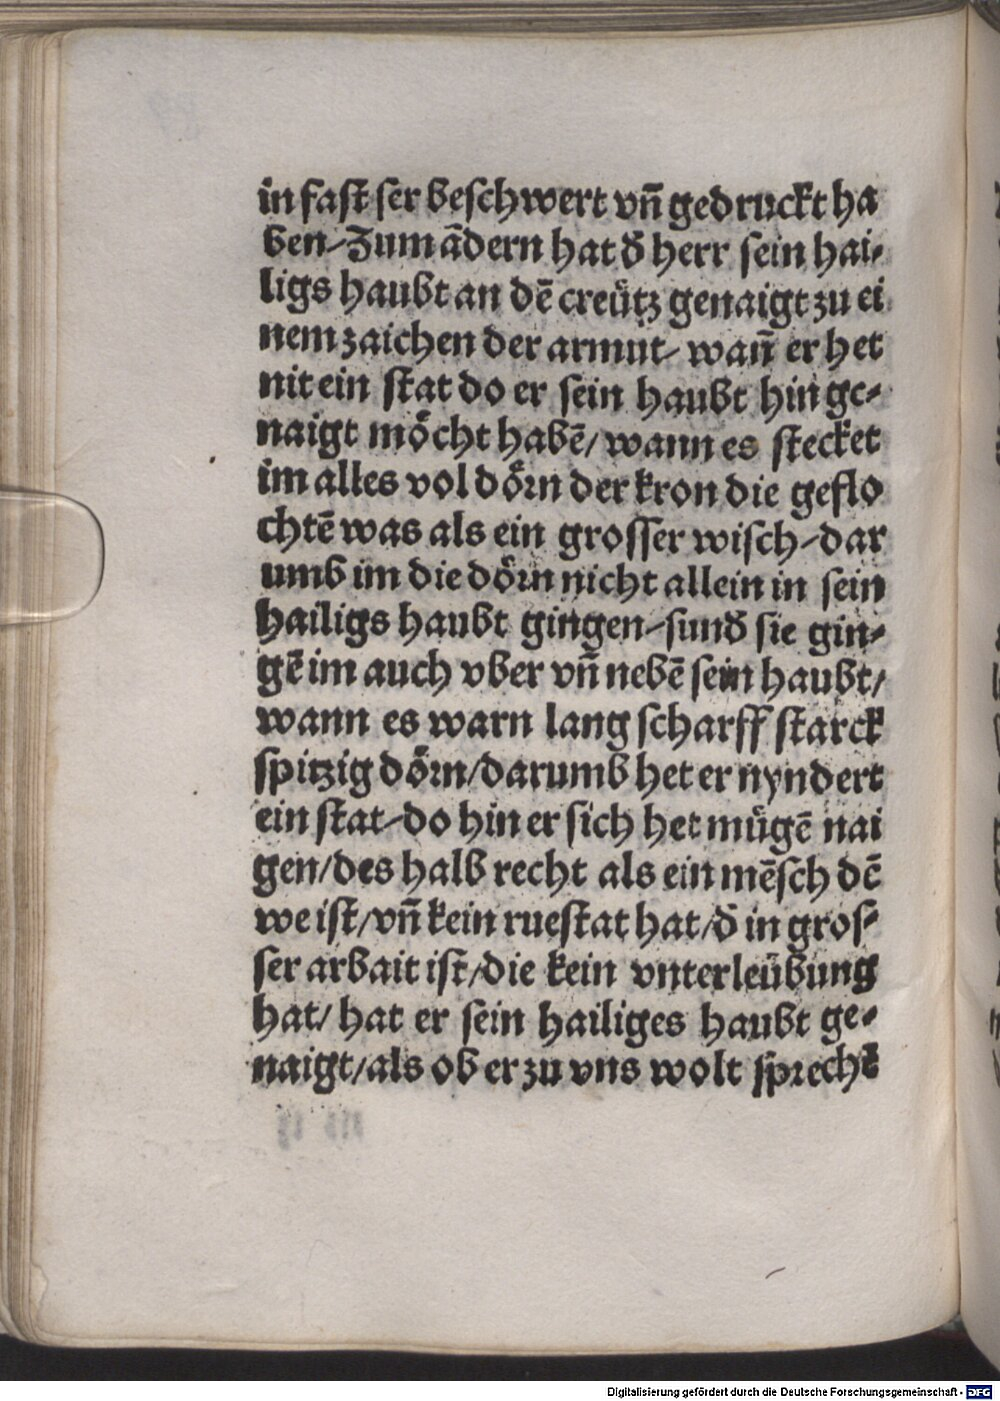 in faſt ſer beſchwert vñ gedruckt ha
ben-Zum ãdern hat d̄ herr ſein hai-
ligs haubt an dẽ creütz genaigt zu ei
nem zaichen der armut- wañ er het
nit ein ſtat do er ſein haubt hin ge-
naigt möcht habẽ/ wann es ſtecket
im alles vol dörn der kron die geflo
chtẽ was als ein groſſer wiſch-dar
umb im die dörn nicht allein in ſein
hailigs haubt gingen-ſund̄ ſie gin-
gẽ im auch vber vñ nebẽ ſein haubt/
wann es warn lang ſcharff ſtarck
ſpitzig dörn/darumb het er nyndert
ein ſtat-do hin er ſich het mügẽ nai
gen/des halb recht als ein mẽſch dẽ
we iſt/vñ kein rueſtat hat/d̄ in groſ-
ſer arbait iſt/die kein vnterleübung
hat/ hat er ſein hailiges haubt ge-
naigt/als ob er zu vns wolt ſprechẽ
Digitalisierung gefördert durch die Deutsche Forschungsgemeinschaft - DFG